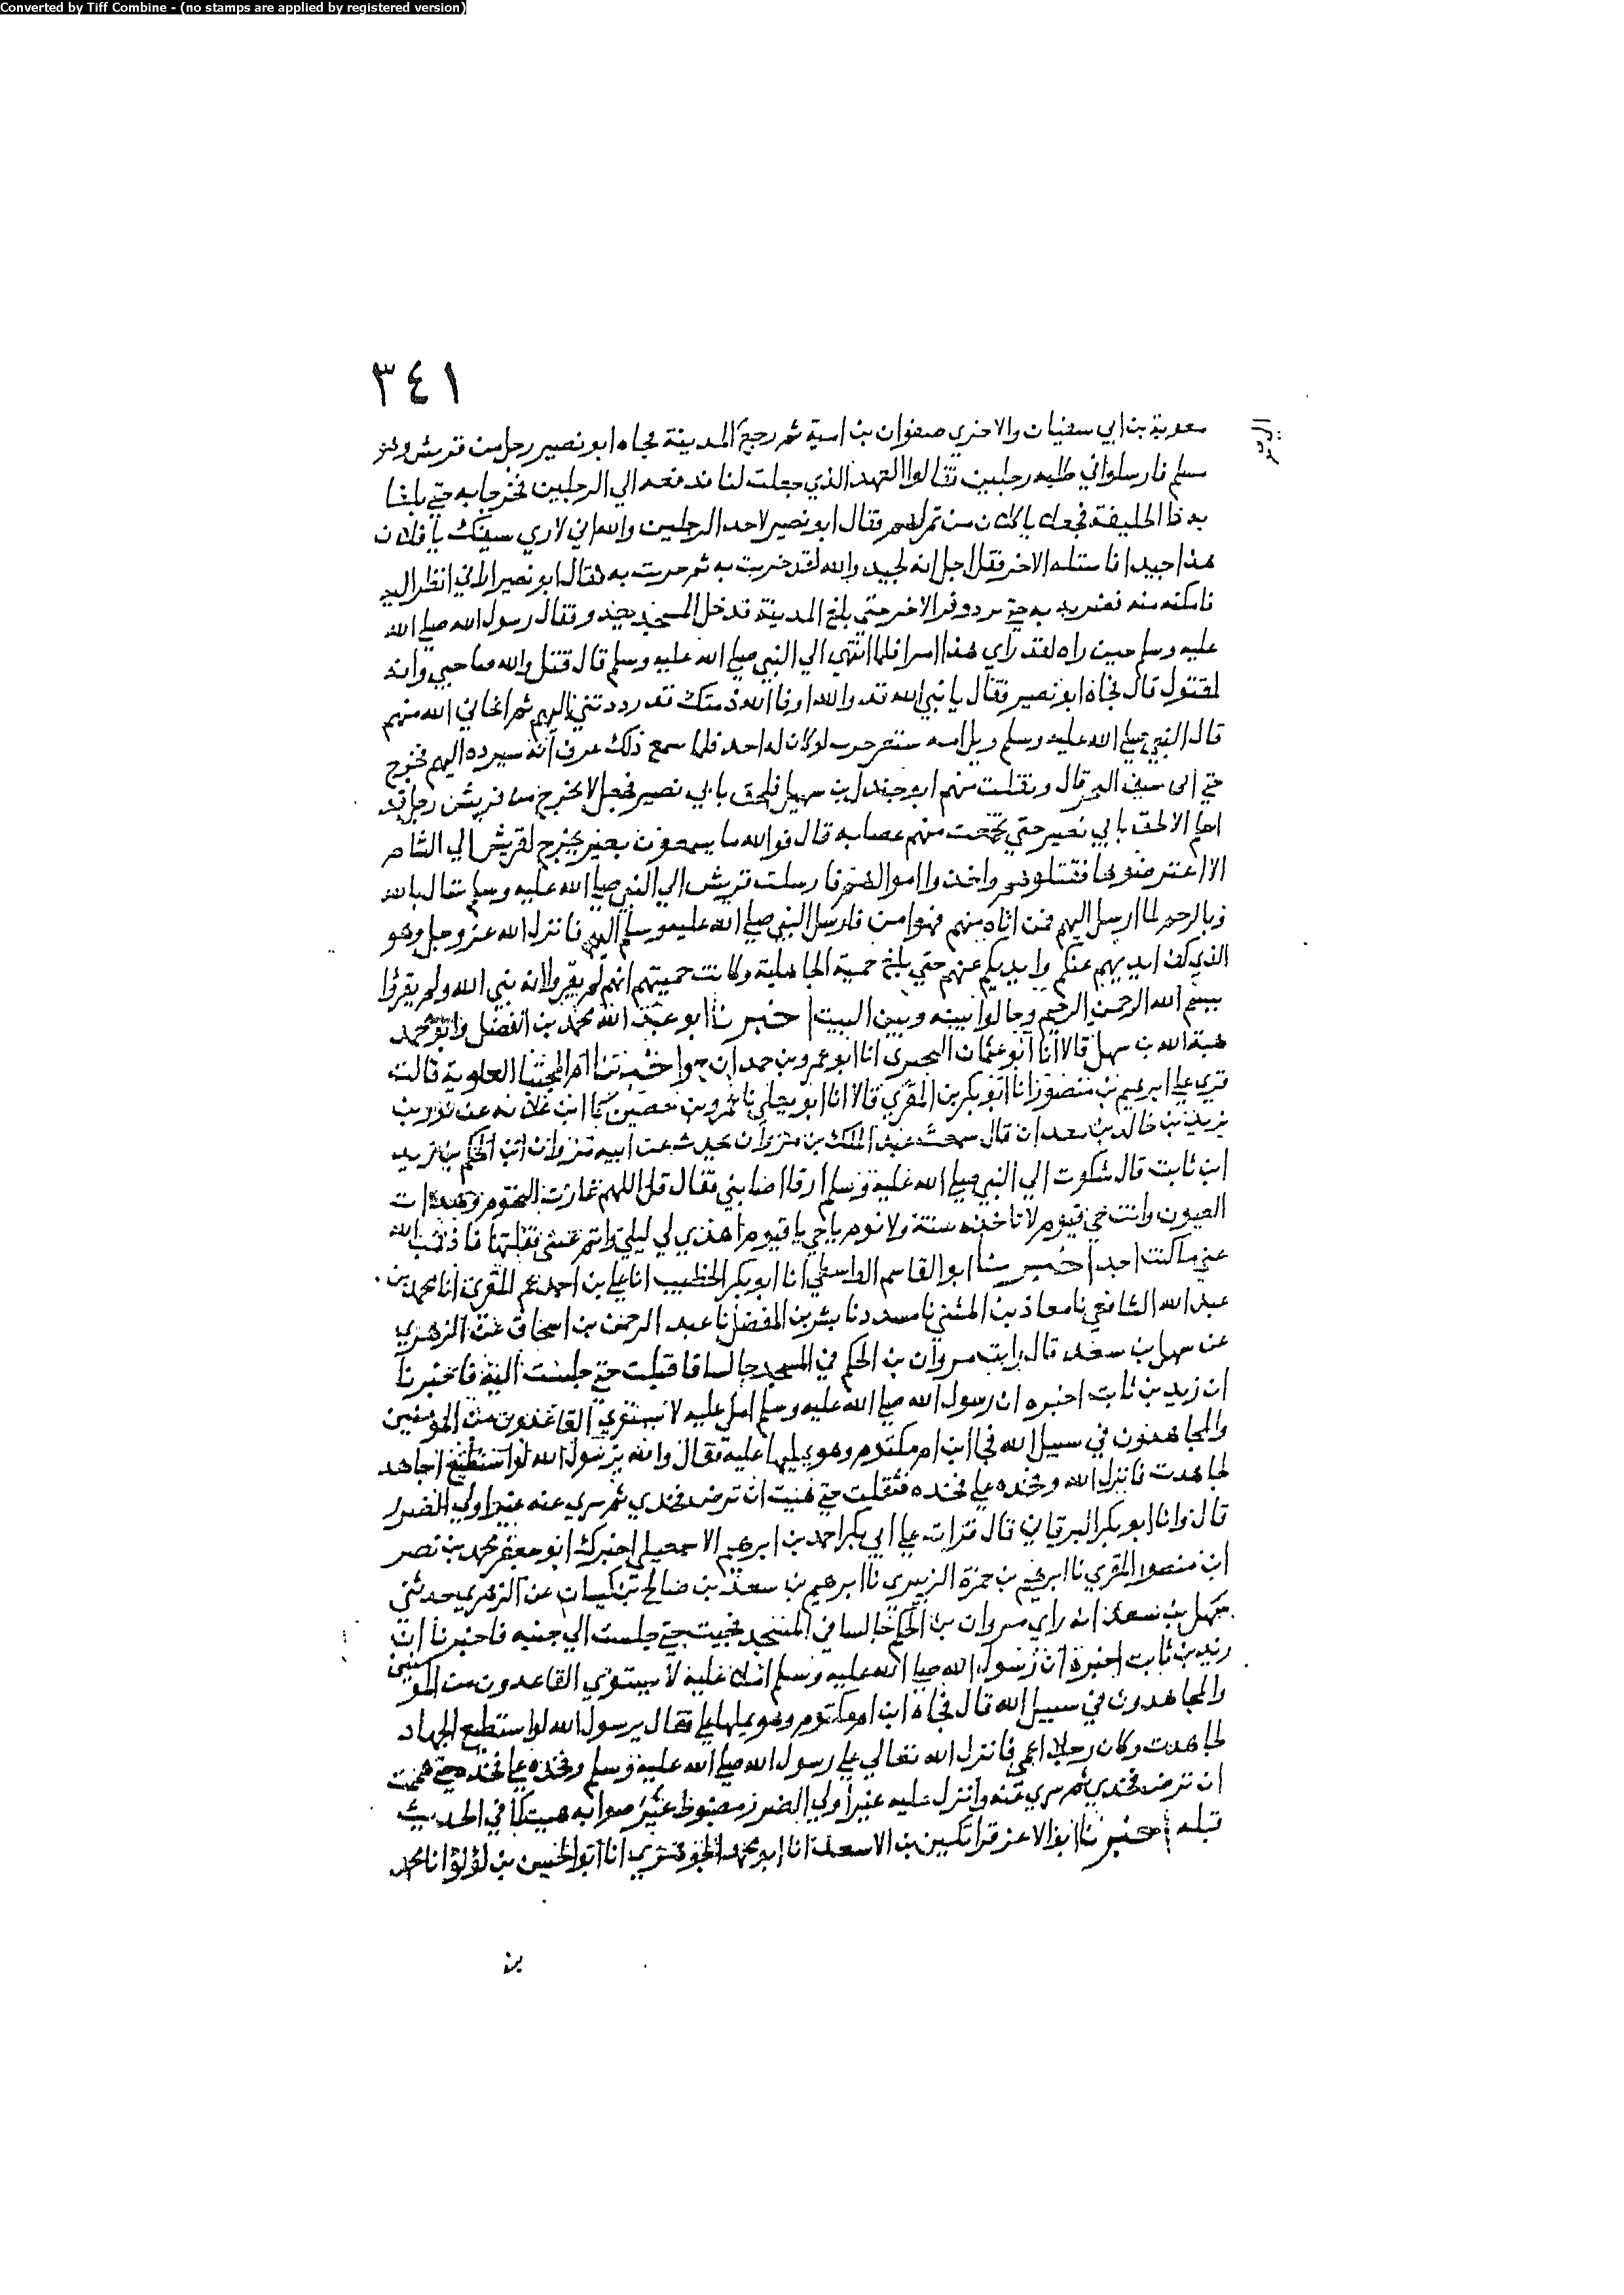 Converted by Tiff Combine - (no stamps are applied by registered version)
٣٤١
معوية بن ابي سفيان والاخري صفوان بن امية ثم رجع المدينة فجاه ابو نصير رجل من قريش وهو
مسلم فارسلوا في طلبه رجلين فقالوا العهد الذي جعلت لنا فدفعه الي الرجلين فخرجا به حتي بلغا
به ذا الحليفة فجعلوا ياكلون من تمر لهم فقال ابو نصير لاحد الرجلين والله اني لاري سيفك يا فلان
هذا جيدا فاستله الاخر فقال اجل انه لجيد والله لقد ضربت به ثم جربت به فقال ابو نصير ارني انظر اليه
فامكنه منه فضربه به حتي برد وفر الاخر حتي بلغ المدينة فدخل المسجد يعدو فقال رسول الله صلي الله
عليه وسلم حين راه لقد راي هذا امرا فلما انتهي الي النبي صلي الله عليه وسلم قال قتل والله صاحبي وانه
لمقتول قال فجاه ابو نصير فقال يا نبي الله قد والله اوفا الله ذمتك قد رددتني اليهم ثم انجاني الله منهم
قال النبي صلي الله عليه وسلم ويل امه مسعر حرب لو كان له احد فلما سمع ذلك عرف انه سيرده اليهم فخرج
حتي اتى سيف البحر قال وتفلت منهم ابو جندل بن سهيل فلحق بابي نصير فجعل لا يخرج من قريش رجل قد
اسلم الا لحق بابي نصير حتي تجمعت منهم عصابه قال فوالله ما يسمعون بعير يخرج لقريش الي الشام
الا اعترضوها فقتلوهم واخذوا اموالهم فارسلت قريش الي النبي صلي الله عليه وسلم تناشده بالله
وبالرحم لما ارسل اليهم فمن اتاه منهم فهو امن فارسل النبي صلي الله عليه وسلم اليهم فانزل الله عز وجل وهو
الذي كف ايديهم عنكم وايديكم عنهم حتي بلغ حمية الجاهلية وكانت حميتهم انهم لم يقروا انه نبي الله ولم يقروا
ببسم الله الرحمن الرحيم وحالوا بينه وبين البيت اخبرنا ابو عبد الله محمد بن الفضل وابو محمد
هبة الله بن سهل قالا انا ابو عثمان البحيري انا ابو عمرو بن حمدان ح واخبرتنا ام المجتبا العلوية قالت
قري علي ابرهيم بن منصور انا ابو بكر بن المقري قالا انا ابو يعلي نا عمرو بن حصين نا ابن علاثه عن ثور بن
يزيد بن خالد بن معدان قال سمعت عبد الملك بن مروان يحدث عن ابيه مروان ابن الحكم بن زيد
ابن ثابت قال شكوت الي النبي صلي الله عليه وسلم ارقا اصابني فقال قل اللهم غارت النجوم وهدات
العيون وانت حي قيوم لا تاخذه سنة ولا نوم يا حي يا قيوم اهدي لي ليلي وانم عيني فقلتها فاذهب الله
عني ما كنت اجد اخبرنا ابو القاسم الواسطي انا ابو بكر الخطيب انا علي بن احمد بن عمر المقري انا محمد بن
عبد الله الشافعي نا معاذ بن المثني نا مسدد نا بشر بن المفضل نا عبد الرحمن بن اسحاق عن الزهري
عن سهل بن سعد قال رايت مروان بن الحكم في المسجد جالسا فاقبلت حتي جلست اليه فاخبرنا
ان زيد بن ثابت اخبره ان رسول الله صلي الله عليه وسلم امل عليه لا يستوي القاعدون من المومنين
والمجاهدون في سبيل الله فجا ابن ام مكتوم وهو يمليها عليه فقال والله يرسول الله لو استطيع اجاهد
لجاهدت فانزل الله وفخذه علي فخذه فثقلت حتي همت ان ترض فخذي ثم سري عنه غير اولي الضرر
قال وانا ابو بكر البرقاني قال قرات علي ابي بكر احمد بن ابرهيم الاسمعيلي اخبرك ابو جعفر محمد بن نصر
ابن منصور المقري نا ابرهيم بن حمزة الزبيري نا ابرهيم بن سعد بن صالح بن كيسان عن الزهري حدثني
سهل بن سعد انه راي مروان بن الحكم جالسا في المسجد فجيت حتي جلست الي جنبه فاخبرنا ان
زيد بن ثابت اخبره ان رسول الله صلي الله عليه وسلم املي عليه لا يستوي القاعدون من المومنين
والمجاهدون في سبيل الله قال فجاه ابن ام مكتوم وهو يمليها علي فقال يرسول الله لو استطيع الجهاد
لجاهدت وكان رجلا اعمي فانزل الله تعالي علي رسول الله صلي الله عليه وسلم وفخذه علي فخذي حتي همت
ان ترض فخذي ثم سري عنه وانزل عليه غير اولي الضرر مضبوط غير صوابه هيت كما في الحديث
قبله اخبرنا ابو الاعز قراتكين بن الاسعد انا ابو محمد الجوهري انا ابو الحسين بن لؤلؤ انا محمد
بن